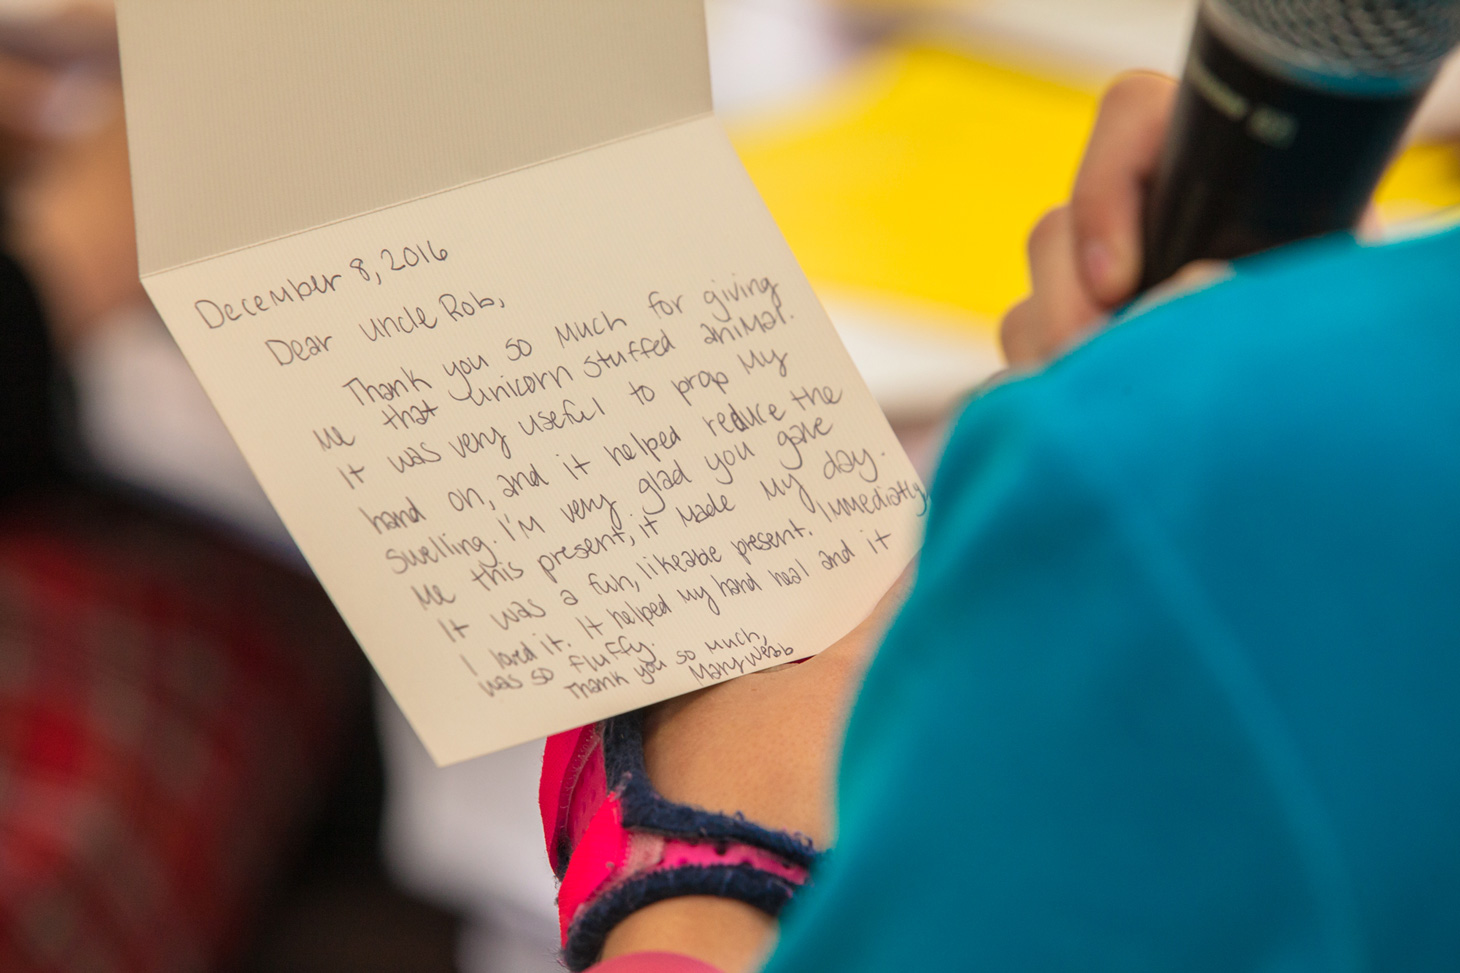 December 8, 2016
Dear Uncle Rob,
Thank you so much for giving
me that unicorn stuffed animal.
It was very useful to prop my
hand on, and it helped reduce the
swelling. I'm very glad you gave
me this present, it made my day.
It was a fun, likeable present. Immediatly
I loved it. It helped my hand heal and it
was so fluffy.
Thank you so much,
Mary Webb